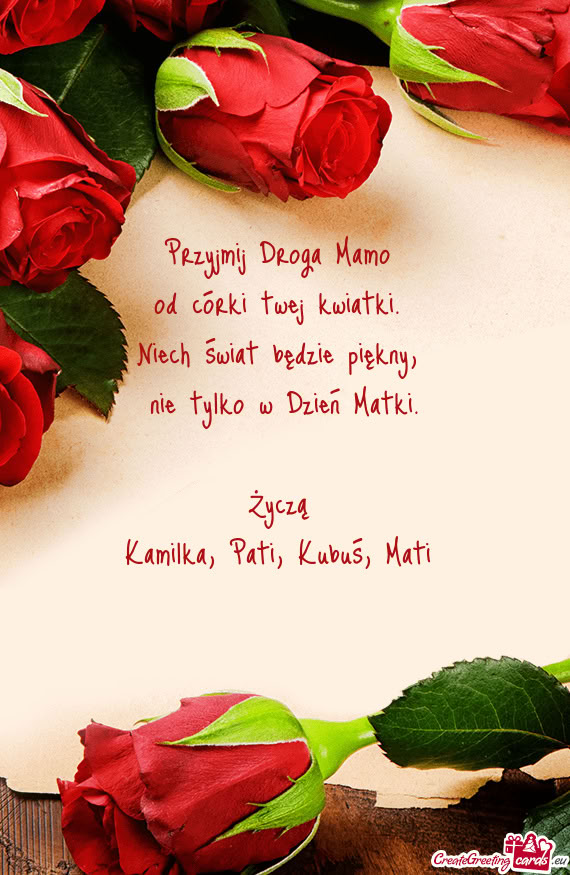 Przyjmij Droga Mamo
od córki twej kwiatki.
Niech świat będzie piękny,
nie tylko w Dzień Matki.
Życzą
Kamilka, Pati, Kubuś, Mati
CreateGreeting cards .eu